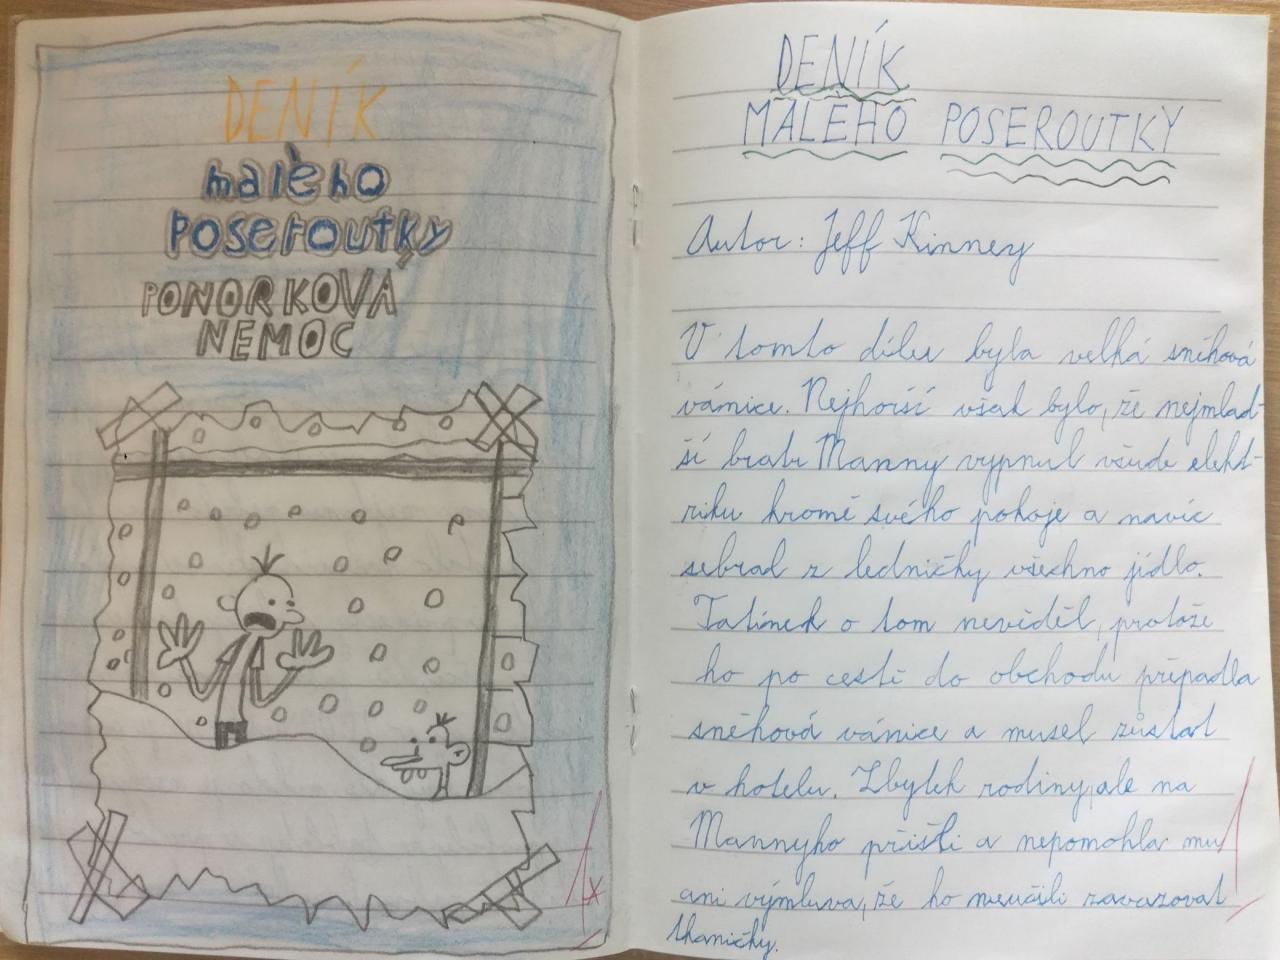 DENÍK
malèho
Poseroutky
PONORKOVÁ
NEMOC
1*
DENÍK
MALÈHO POSEROUTKY
Autor: Jeff Kinney
V tomto dílu byla velká sněhová
vánice. Nejhorší však bylo, že nejmlad-
ší bratr Manny vypnul všude elekt-
riku kromě svého pokoje a navíc
sebral z ledničky všechno jídlo.
Tatínek o tom nevěděl, protože
ho po cestě do obchodu přepadla
sněhová vánice a musel zůstat
v hotelu. Zbytek rodiny, ale na
Mannyho přišli a nepomohla mu
ani výmluva, že ho neučili zavazovat
tkaničky.
1